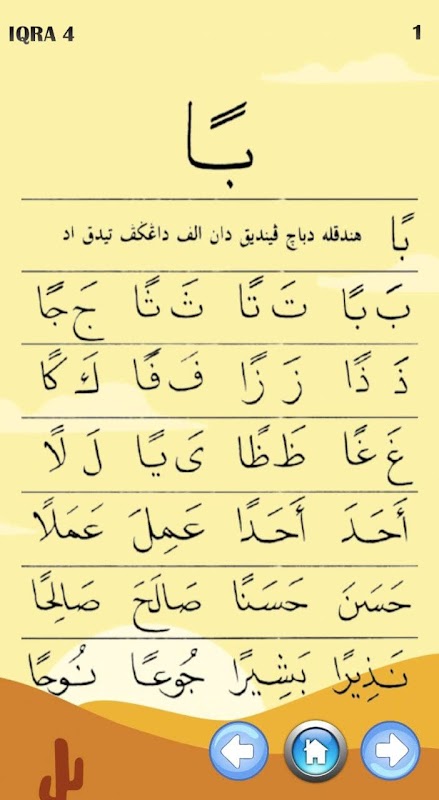 IQRA 4 1
بًا
بًا هندقله دباچ ڤينديق دان الف داڠݢڤ تيدق اد
بَ بًا تَ تًا ثَ ثًا جَ جًا
ذَ ذًا زَ زًا فَ فًا كَ كًا
غَ غًا ظَ ظًا ىَ يًا لَ لًا
أَحَدَ أَحَدًا عَمِلَ عَمَلًا
حَسَنَ حَسَنًا صَالَحَ صَالِحًا
نَذِيرًا بَشِيرًا جُوعًا نُوحًا